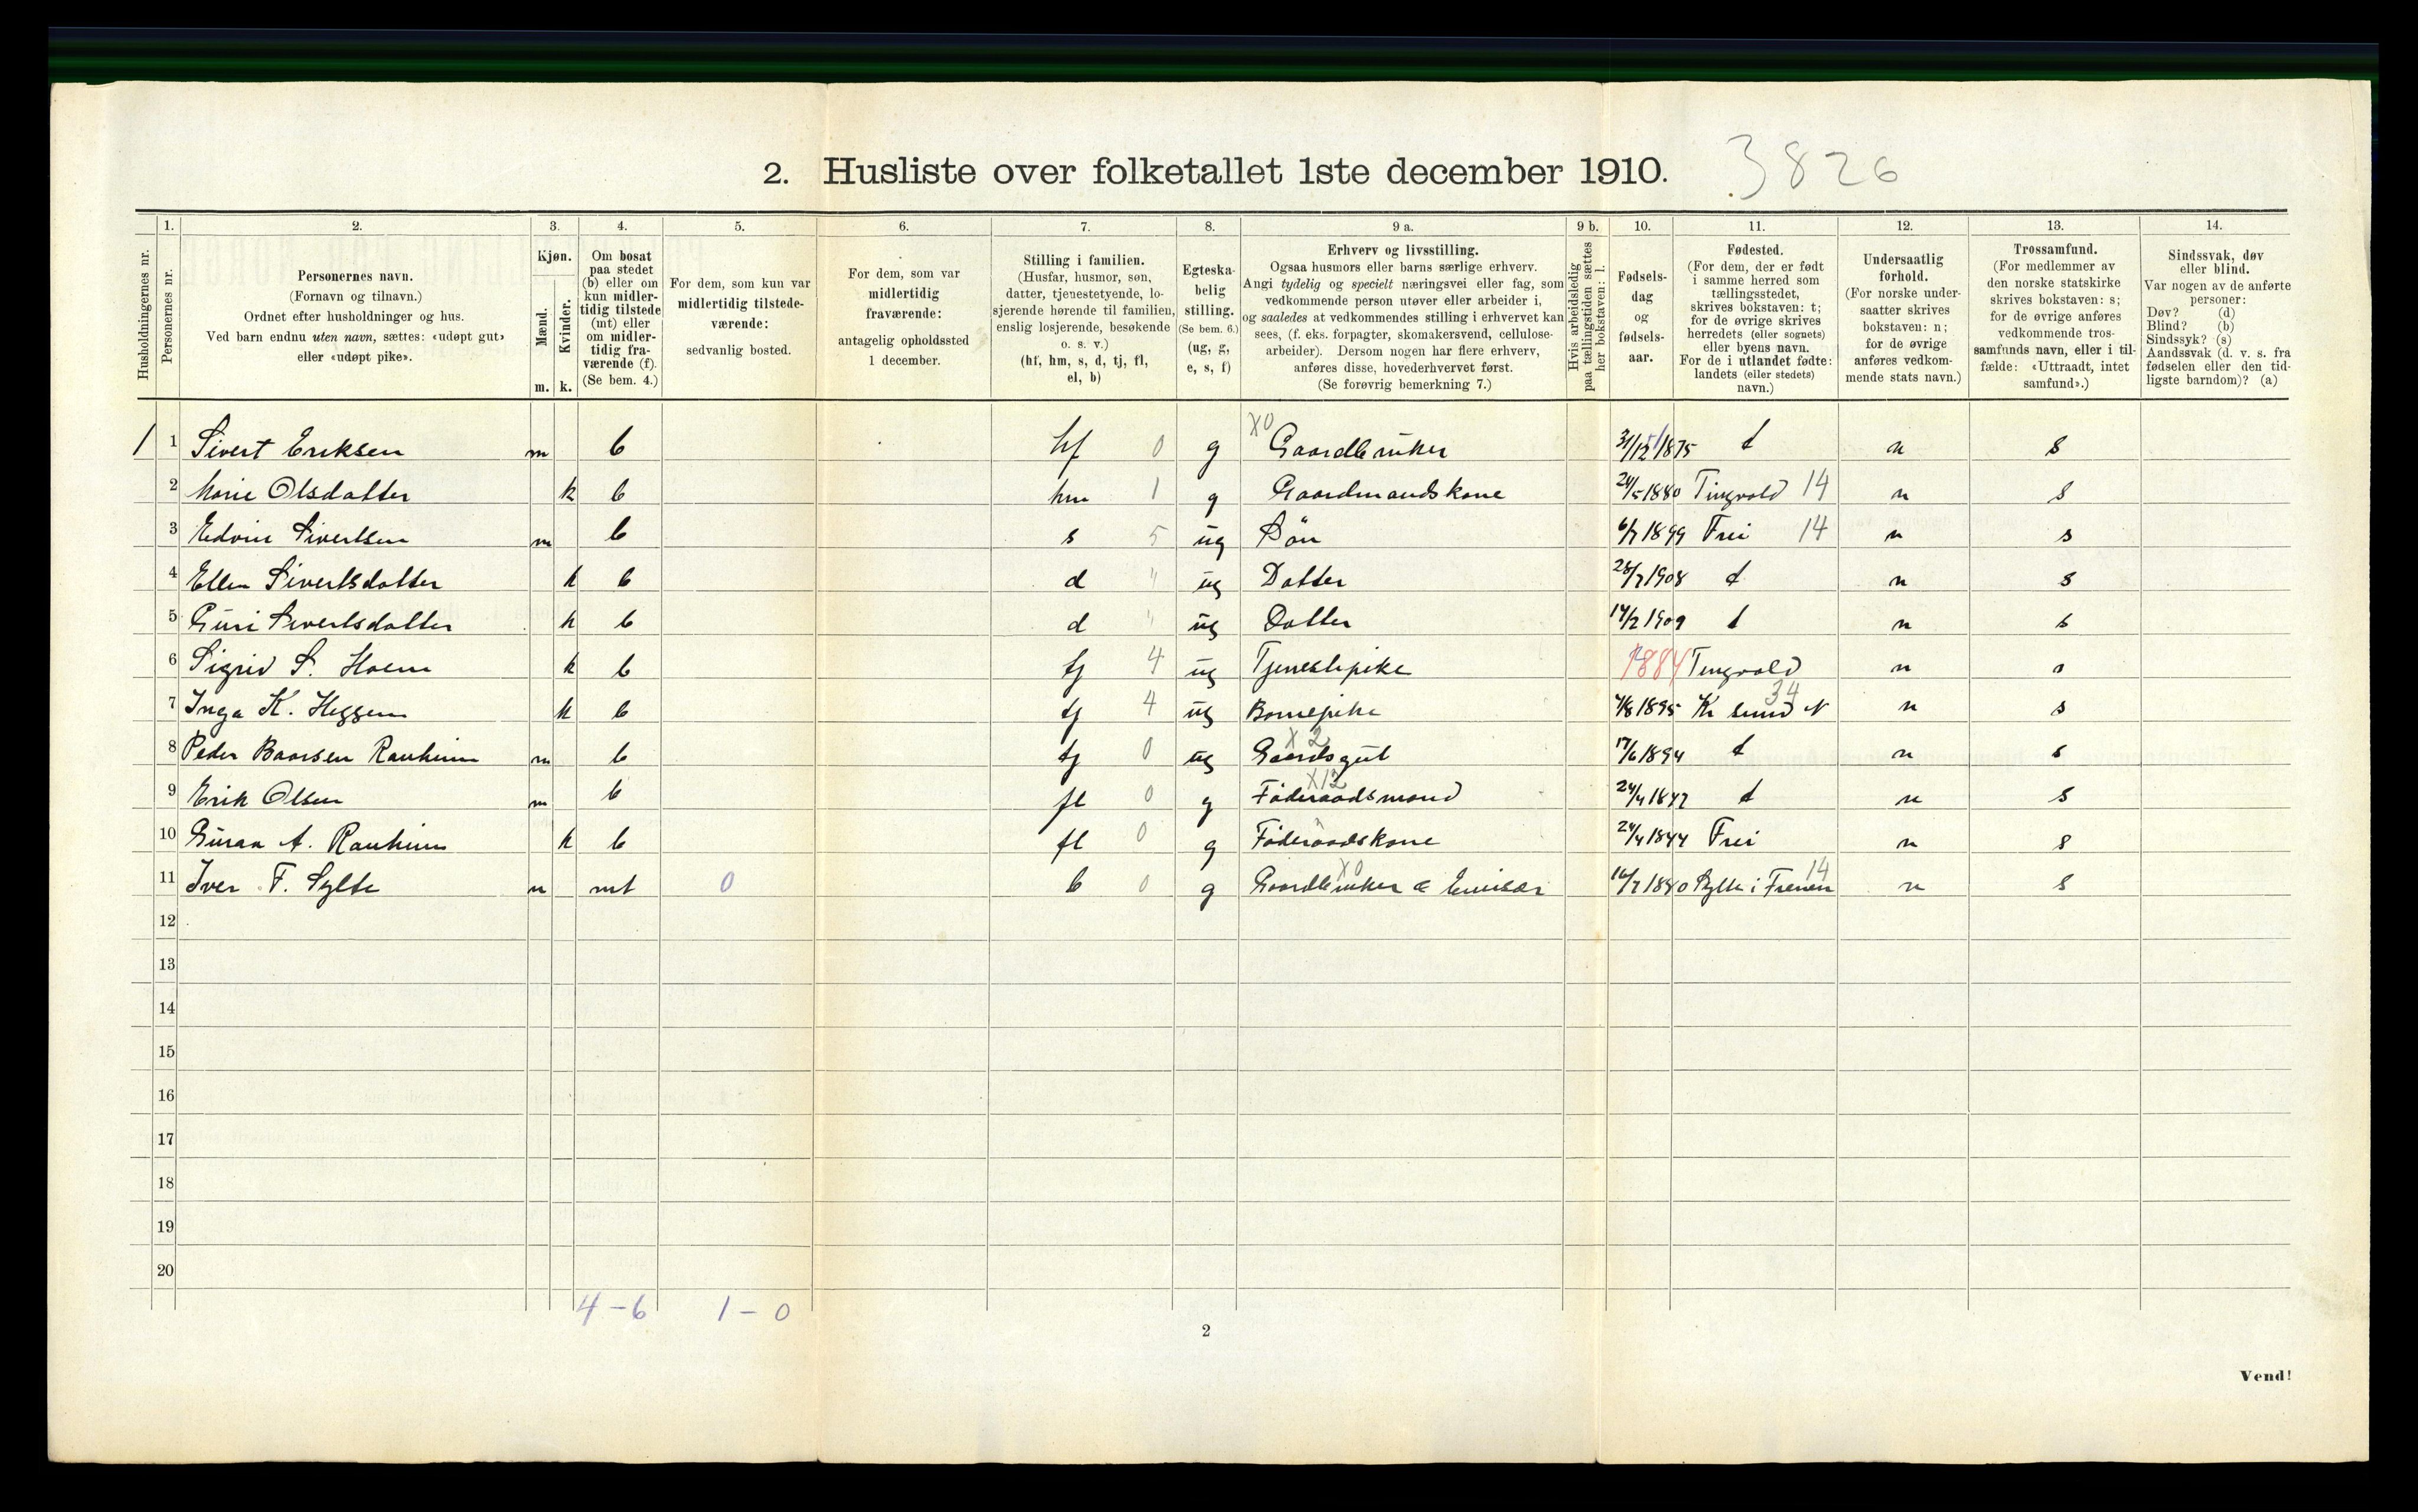 2. Husliste over folketallet 1ste december 1910. 3826
1. 2. 3. 4. 5. 6. 7. 8. 9 a. 9 b. 10. 11. 12. 13. 14.
Husholdningernes nr.
Personernes nr.
Personernes navn.
(Fornavn og tilnavn.)
Ordnet efter husholdninger og hus.
Ved barn endnu uten navn, sættes: «udøpt gut»
eller «udøpt pike».
Kjøn.
Mænd.
Kvinder.
m. k.
Om bosat
paa stedet
(b) eller om
kun midler-
tidig tilstede
(mt) eller
om midler-
tidig fra-
værende (f).
(Se bem. 4.)
For dem, som kun var
midlertidig tilstede-
værende:
sedvanlig bosted.
For dem, som var
midlertidig
fraværende:
antagelig opholdssted
1 december.
Stilling i familien.
(Husfar, husmor, søn,
datter, tjenestetyende, lo-
sjerende hørende til familien,
enslig losjerende, besøkende
o. s. v.)
(hf, hm, s, d, tj, fl,
el, b)
Egteska-
belig
stilling.
(Se bem. 6.)
(ug, g,
e, s, f)
Erhverv og livsstilling.
Ogsaa husmors eller barns særlige erhverv.
Angi tydelig og specielt næringsvei eller fag, som
vedkommende person utøver eller arbeider i,
og saaledes at vedkommendes stilling i erhvervet kan
sees, (f. eks. forpagter, skomakersvend, cellulose-
arbeider). Dersom nogen har flere erhverv,
anføres disse, hovederhvervet først.
(Se forøvrig bemerkning 7.)
Hvis arbeidsledig
paa tællingstiden sættes
her bokstaven: l.
Fødsels-
dag
og
fødsels-
aar.
Fødested.
(For dem, der er født
i samme herred som
tællingsstedet,
skrives bokstaven: t;
for de øvrige skrives
herredets (eller sognets)
eller byens navn.
For de i utlandet fødte:
landets (eller stedets)
navn.)
Undersaatlig
forhold.
(For norske under-
saatter skrives
bokstaven: n;
for de øvrige
anføres vedkom-
mende stats navn.)
Trossamfund.
(For medlemmer av
den norske statskirke
skrives bokstaven: s;
for de øvrige anføres
vedkommende tros-
samfunds navn, eller i til-
fælde: «Uttraadt, intet
samfund».)
Sindssvak, døv
eller blind.
Var nogen av de anførte
personer:
Døv? (d)
Blind? (b)
Sindssyk? (s)
Aandssvak (d. v. s. fra
fødselen eller den tid-
ligste barndom)? (a)
1 1 Sivert Eriksen m b hf 0 g X0 Gaardbruker 31/12 1875 t n s
2 Marie Olsdatter k b hm 1 g Gaardmandskone 24/5 1880 Tingvold 14 n s
3 Edvin Sivertsen m b s 5 ug Sön 6/7 1899 Frei 14 n s
4 Ellen Sivertsdatter k b d " ug Datter 28/7 1908 t n s
5 Guri Sivertsdatter k b d " ug Datter 14/2 1909 t n s
6 Sigrid S. Hoem k b tj 4 ug Tjenestepike 1884 Tingvold n s
7 Inga K. Heggem k b tj 4 ug Barnepike 4/8 1895 Kr sund N 34 n s
8 Peder Baarsen Rauheim m b tj 0 ug X 2 Gaardsgut 17/6 1894 t n s
9 Erik Olsen m b fl 0 g X12 Föderaadsmand 24/4 1842 t n s
10 Guran A. Rauheim k b fl 0 g Föderaadskone 24/4 1844 Frei n s
11 Iver F. Sylte m mt 0 b 0 g X0 Gaardbruker & Emisær 16/7 1880 Sylte i Frænen 14 n s
12
13
14
15
16
17
18
19
20
4 - 6 1 - 0
2
Vend!